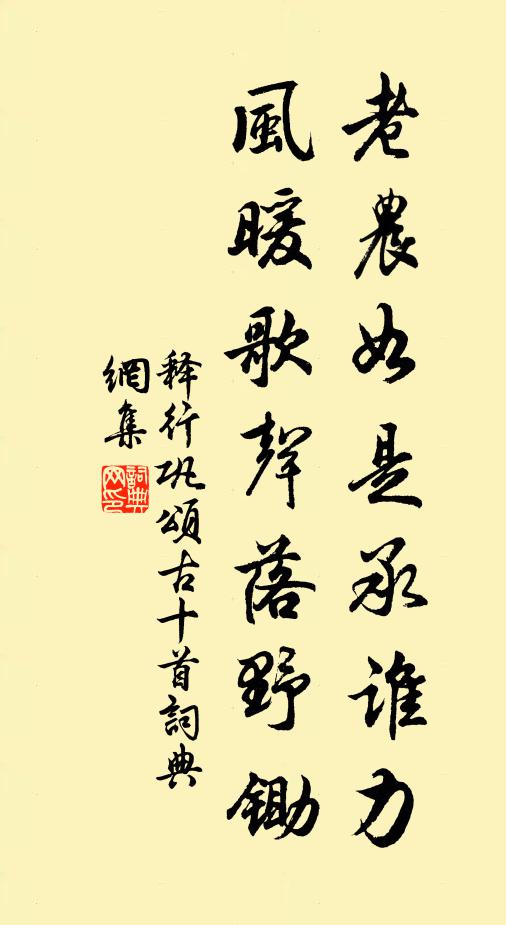 老農如是承誰力
風暖歌聲落野鋤
释行巩頌古十首詞典
網集
詞典
网印